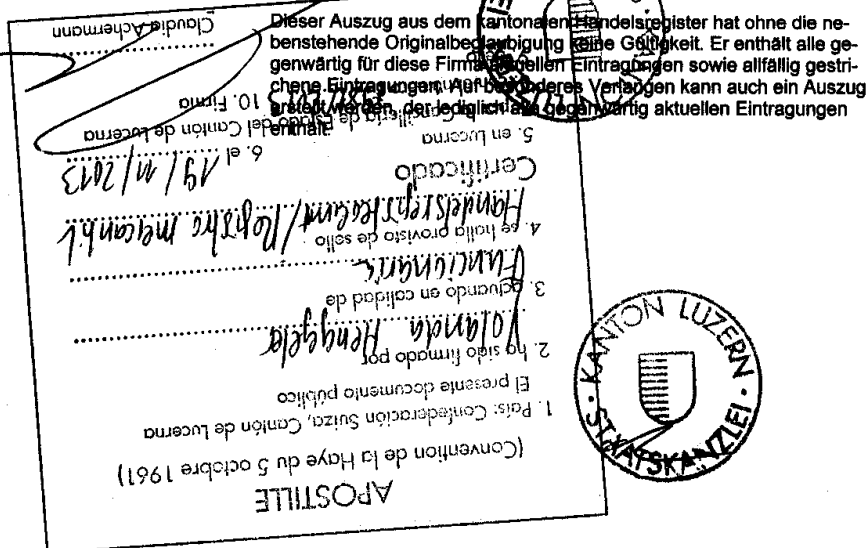 Dieser Auszug aus dem kantonalen Handelsregister hat ohne die ne-
benstehende Originalbeglaubigung keine Gültigkeit. Er enthält alle ge-
genwärtig für diese Firma aktuellen Eintragungen sowie allfällig gestri-
chene Eintragungen. Auf besonderes Verlangen kann auch ein Auszug
erstellt werden, der lediglich alle gegenwärtig aktuellen Eintragungen
enthält.
APOSTILLE
(Convention de la Haye du 5 octobre 1961)
1. País: Confederación Suiza, Cantón de Lucerna
El presente documento público
2. ha sido firmado por
Yolanda Henggeler
3. actuando en calidad de
Funcionaria
4. se halla provisto de sello
Handelsregisteramt/Registro mercantil
Certificado
5. en Lucerna
6. el 19/11/2013
Cancillería de Estado del Cantón de Lucerna
10. Firma
Claudia Achermann
KANTON LUZERN
STAATSKANZLEI